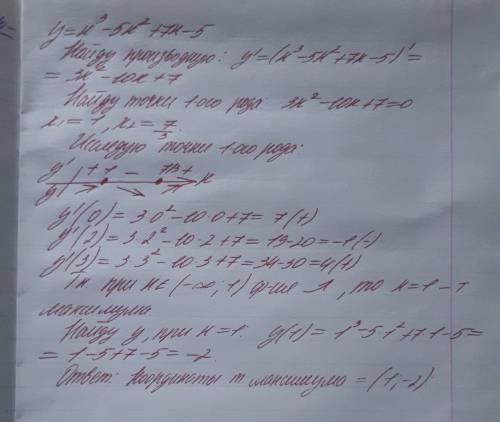 y = x³ - 5x² + 7x - 5
Найду производную: y' = (x³ - 5x² + 7x - 5)' =
= 3x² - 10x + 7
Найду точки 1-ого рода: 3x² - 10x + 7 = 0
x₁ = 1, x₂ = 7/3.
Исследую точки 1-ого рода:
y' + 1 - 7/3 + x
y
y'(0) = 3·0² - 10·0 + 7 = 7 (+)
y'(2) = 3·2² - 10·2 + 7 = 19 - 20 = -1 (-)
y'(3) = 3·3² - 10·3 + 7 = 34 - 30 = 4 (+)
Т.к. при x ∈ (-∞; 1) ф-ция ↗, то x = 1 - т
максимума.
Найду y, при x = 1. y(1) = 1³ - 5·1² + 7·1 - 5 =
= 1 - 5 + 7 - 5 = -2
Ответ: координаты т. максимума = (1; -2)